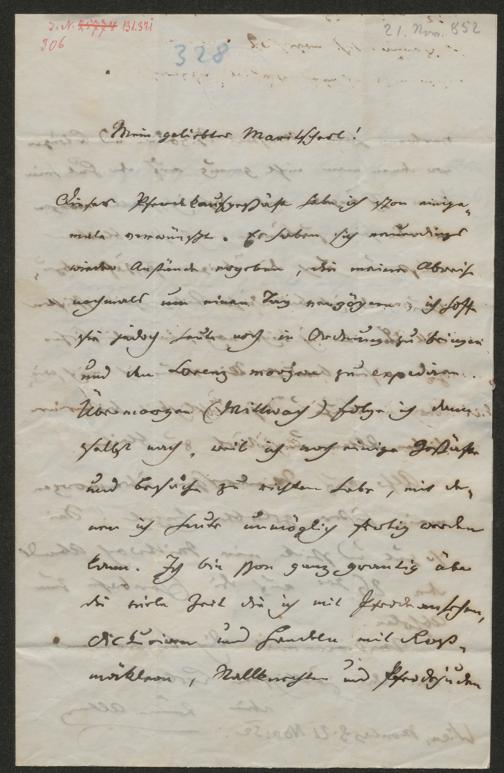 I. N. 131.371
906
21. Nov. 852
328
Mein geliebter Maritscherl!
Dieses Pferdkaufgeschäft habe ich schon einige-
male verwünscht. Es haben sich neuerdings
wieder Anstände ergeben, die meine Abreise
nochmals um einen Tag verzögern; ich hoffe
sie jedoch heute noch in Ordnung zu bringen
und den Lorenz morgen zu expediren.
Übermorgen (Mittwoch) folge ich dem-
selben nach, weil ich noch einige Geschäfte
und Besuche zu richten habe, mit de-
nen ich heute unmöglich fertig werden
kann. Ich bin schon ganz grantig über
die viele Zeit die ich mit Pferdeansehen,
dickuriren und Handeln mit Roß-
mäklern, Stallknechten und Pferdejuden